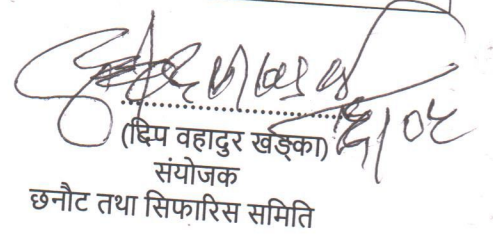 (द्विप वहादुर खड्का)
संयोजक
छनौट तथा सिफारिस समिति